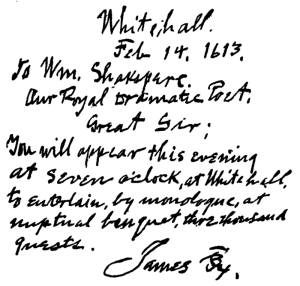 Whitehall.
Feb 14, 1613.
To Wm. Shakspere.
Our Royal Dramatic Poet,
Great Sir;
You will appear this evening
at seven o'clock, at Whitehall,
to entertain, by monologue, at
nuptual banquet, three thousand
guests.
James